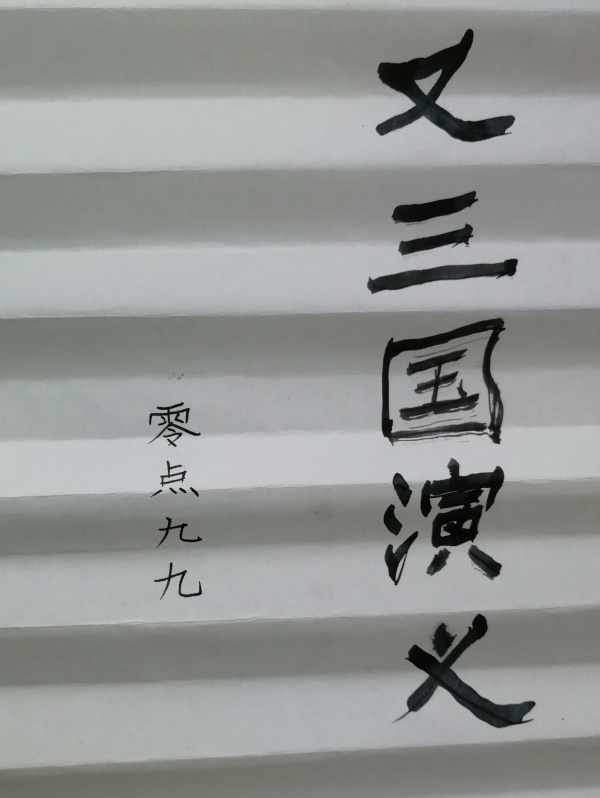 又三国演义
零点九九